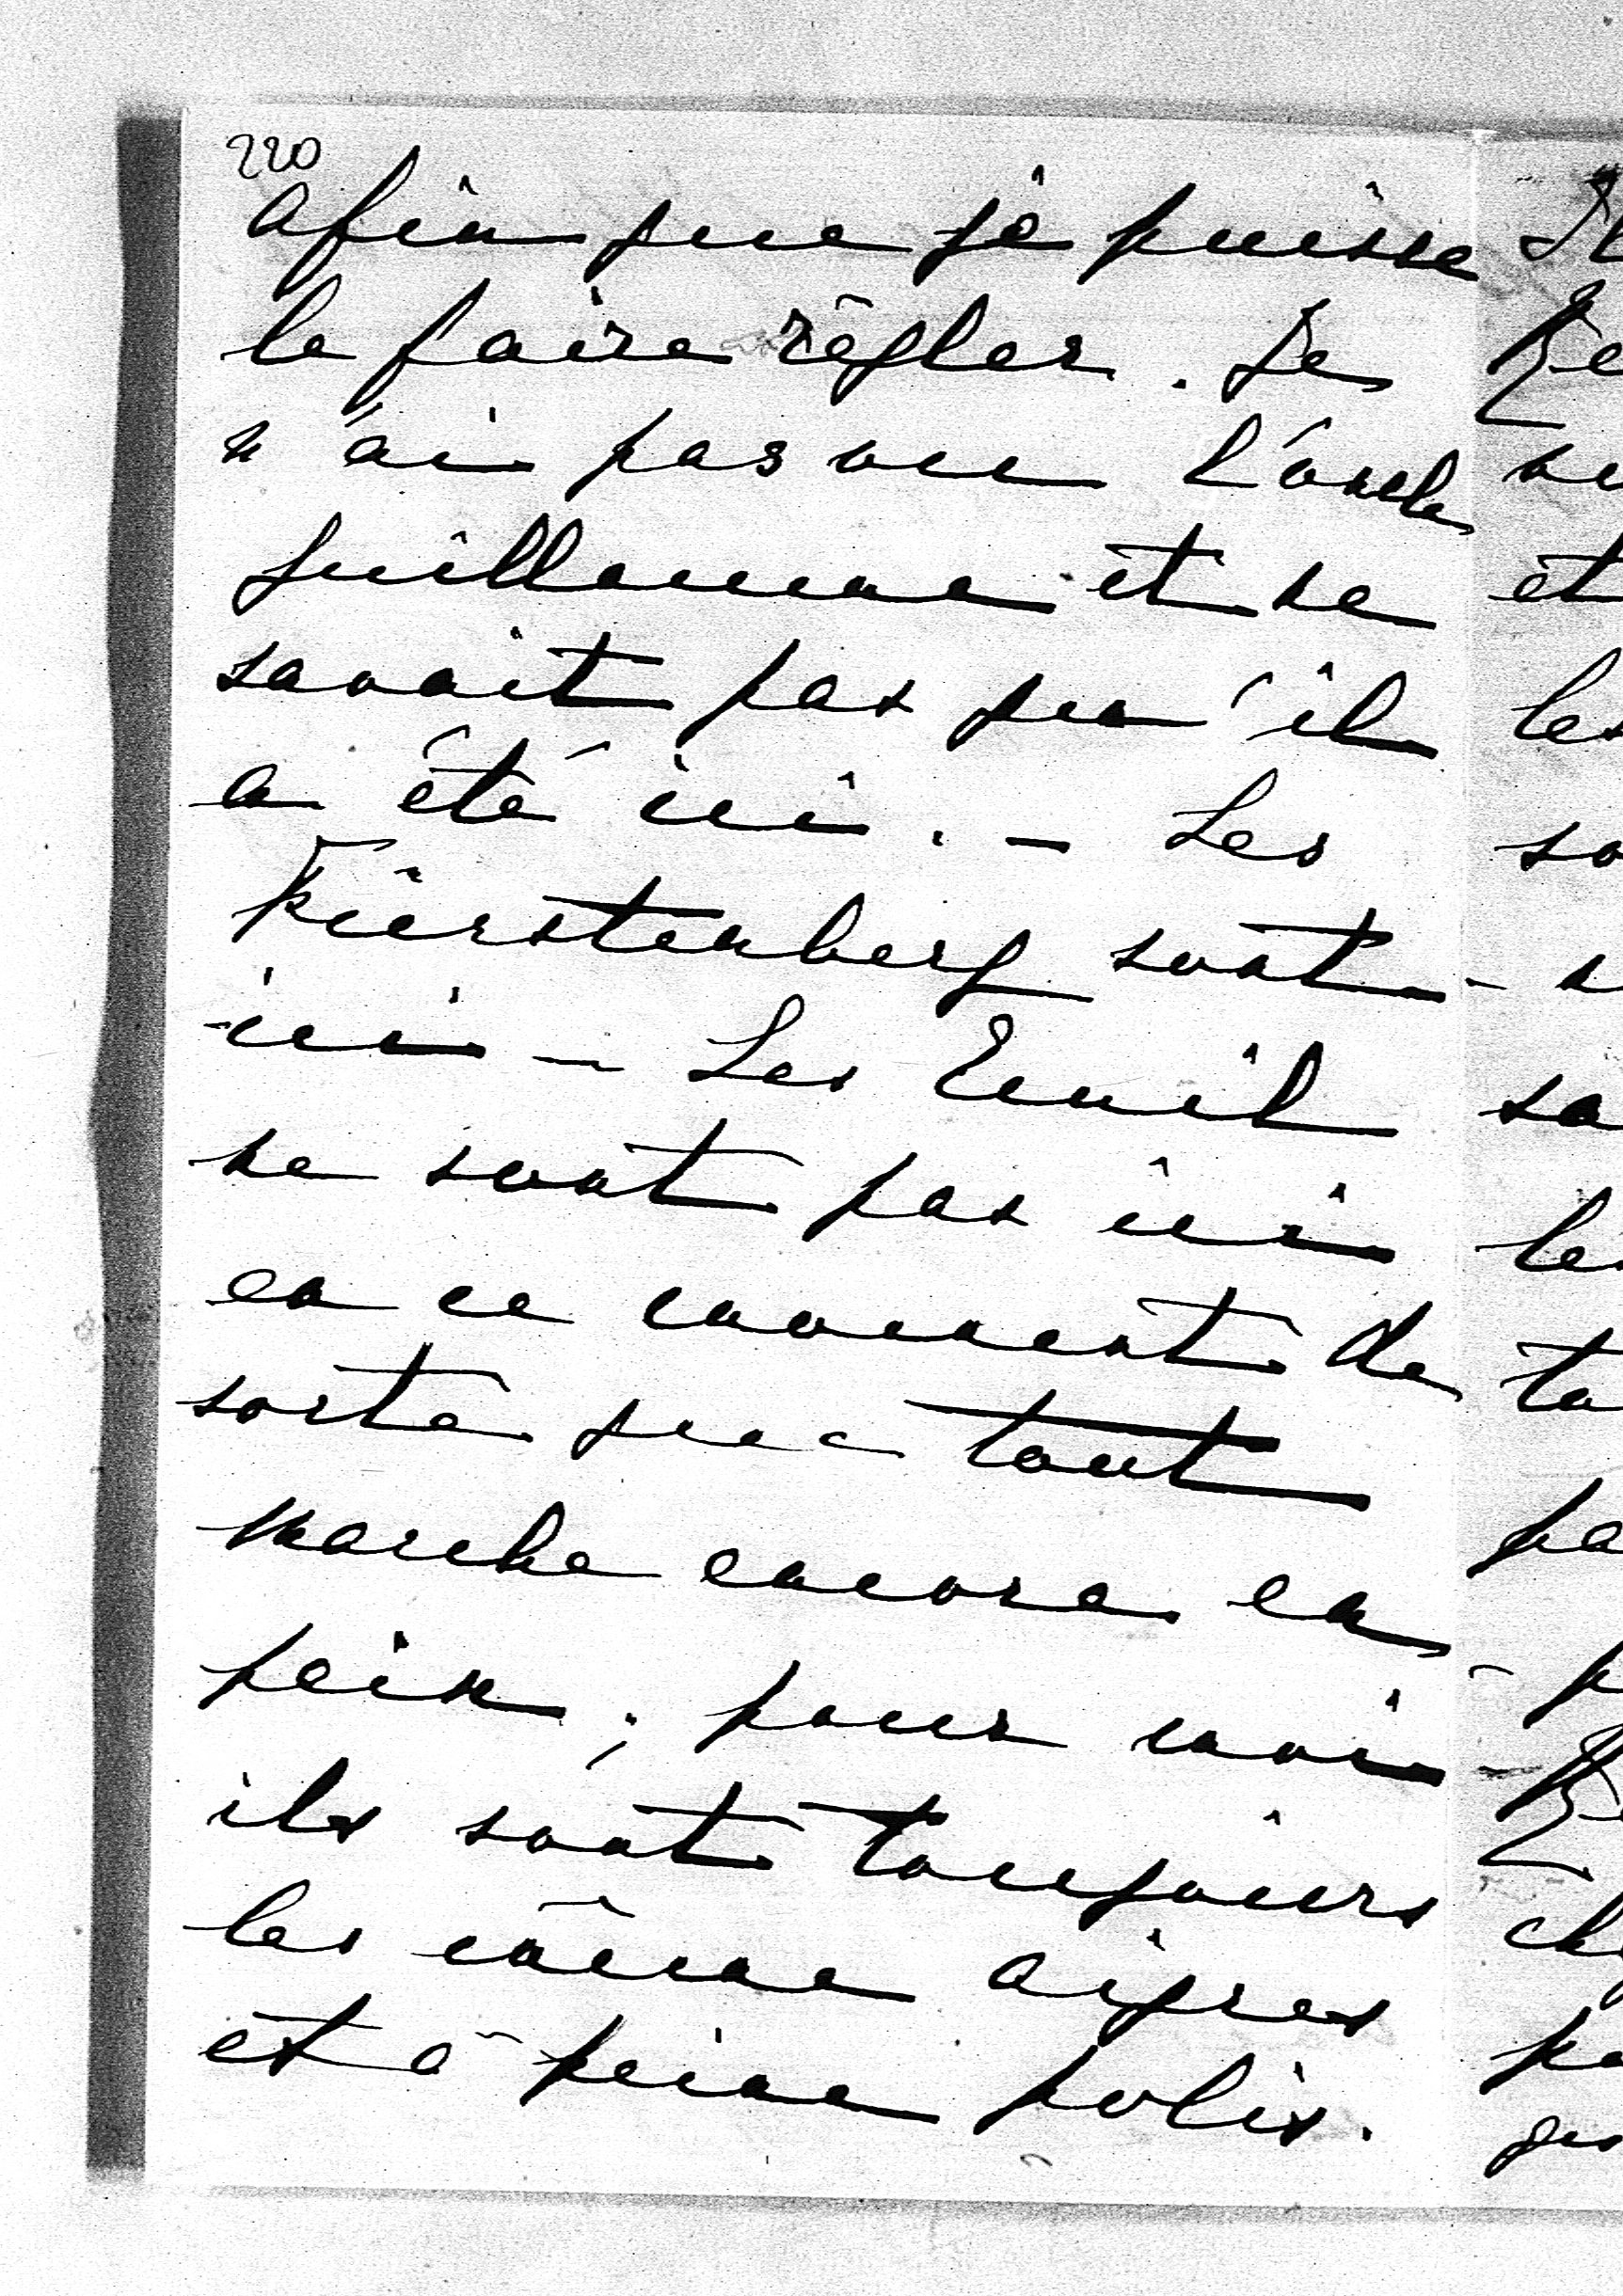 220
afin que je puisse
le faire règler. Je
n'ai pas vu l'oncle
Guillaume et ne
savait pas qu'il
a été ici. — Les
Fürstenberg sont
ici — Les Emil
ne sont pas ici
en ce moment de
sorte que tout
marche encore en
paix; pour moi
ils sont toujours
les même aigres
et à peine polis.